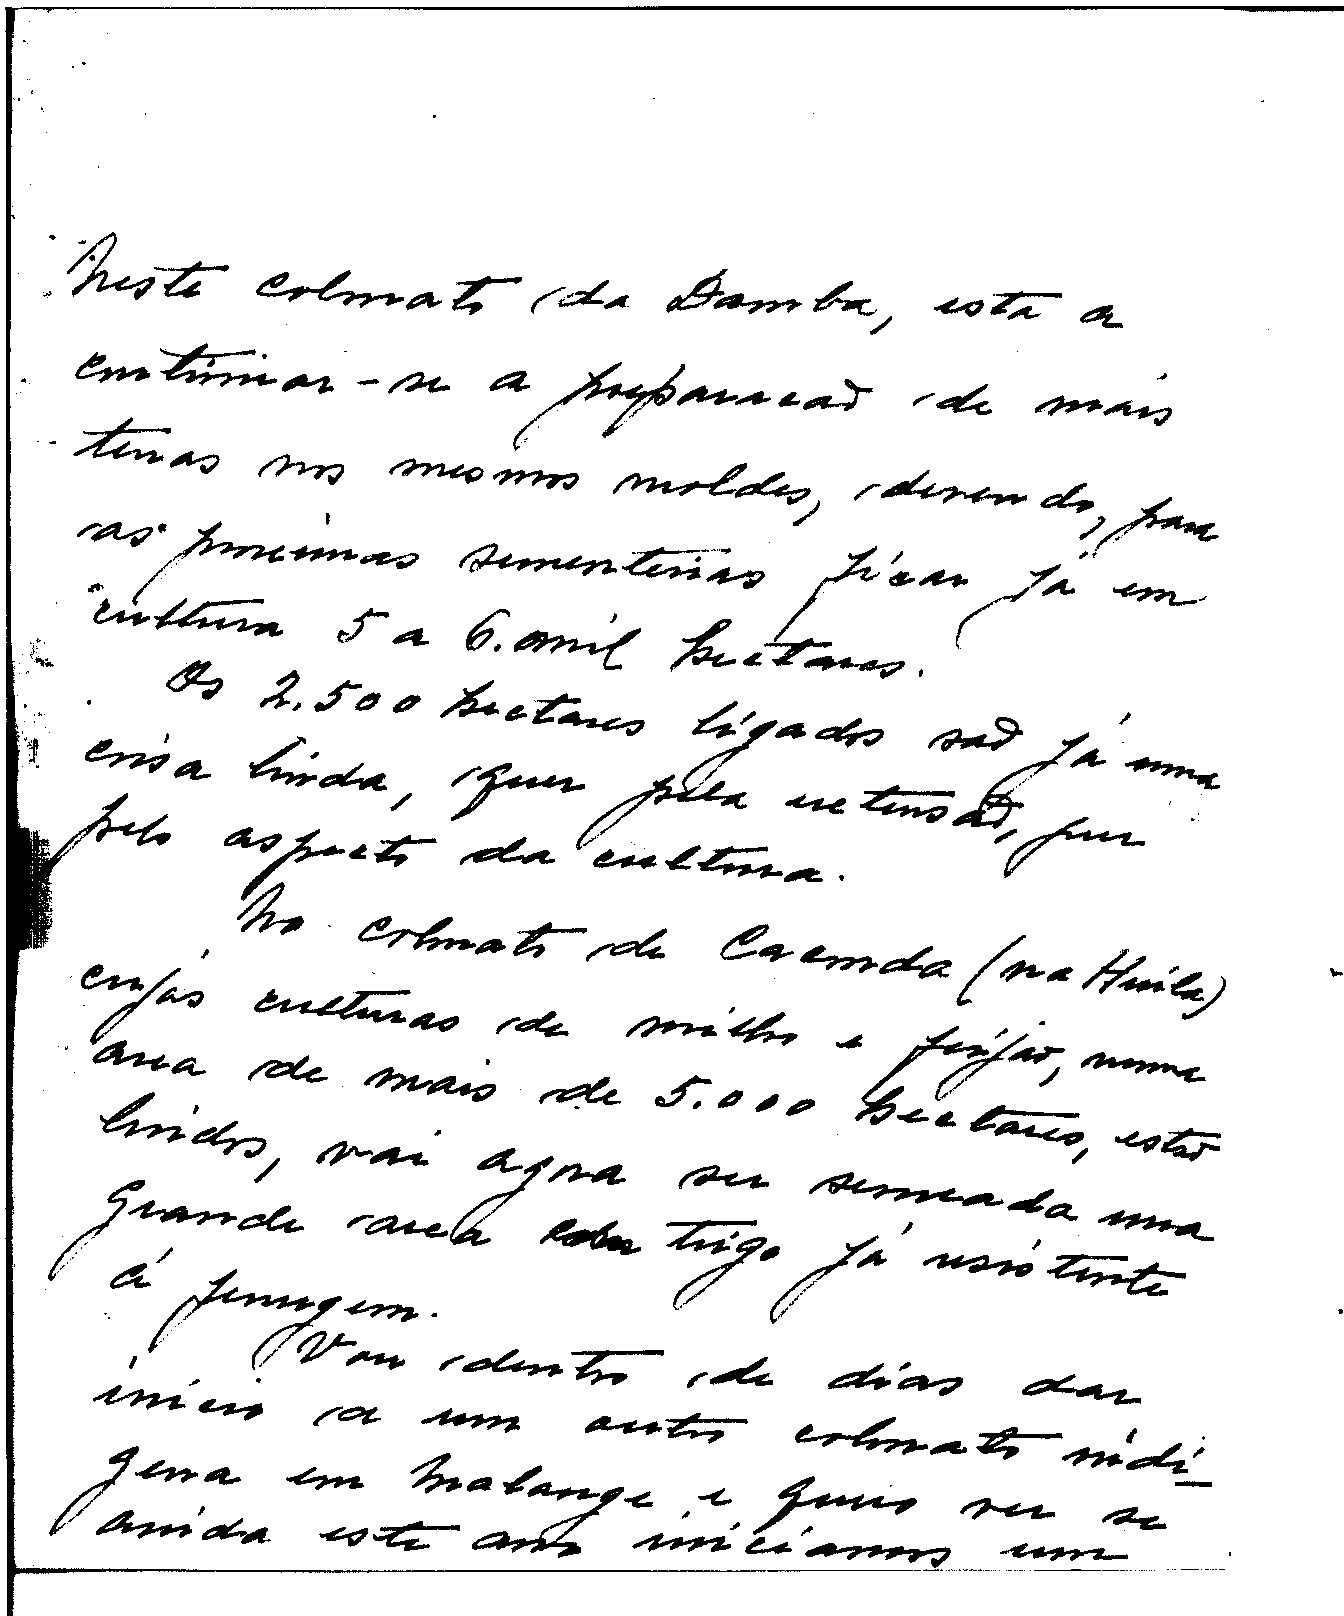 Neste colonato da Damba, esta a
continuar-se a preparacaõ de mais
terras nos mesmos moldes, devendo, para
as proximas sementeiras ficar já em
cultura 5 a 6. mil hectares.
Os 2.500 hectares ligados saõ já uma
coisa linda, quer pela extensaõ, quer
pelo aspecto da cultura.
No colonato de Caconda (na Huila)
cujas culturas de milho e feijaõ, numa
area de mais de 5.000 hectares, estaõ
lindos, vai agora ser semeada uma
grande area com trigo já resistente
á ferrugem.
Vou dentro de dias dar
inicio a um outro colonato indi-
gena em Malange e quero ver se
ainda este ano iniciamos um